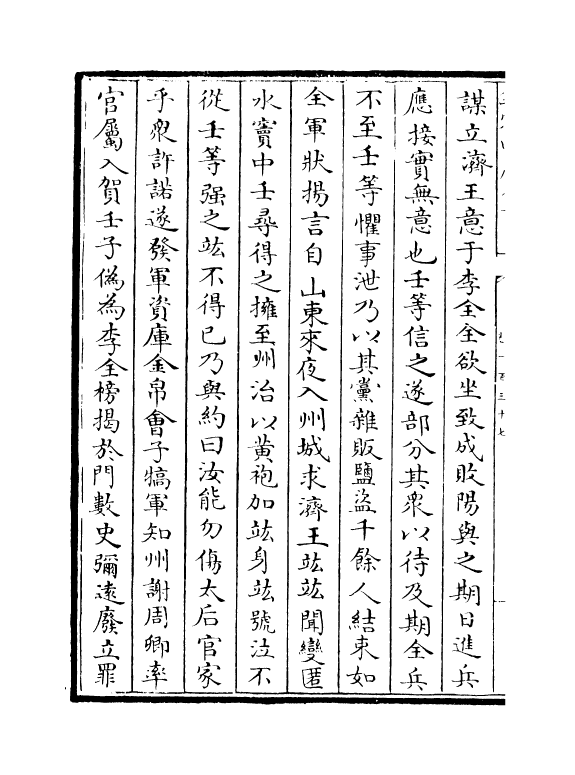 謀立濟王意于李全全欲坐致成敗陽與之期日進兵
應接實無意也壬等信之遂部分其衆以待及期全兵
不至壬等懼事泄乃以其黨雜販鹽盜千餘人結束如
全軍狀揚言自山東來夜入州城求濟王竑竑聞變匿
水竇中壬尋得之擁至州治以黄袍加竑身竑號泣不
從壬等强之竑不得已乃與約曰汝能勿傷太后官家
乎衆許諾遂發軍資庫金帛會子犒軍知州謝周卿率
官屬入賀壬子僞為李全榜揭於門數史彌逺廢立罪